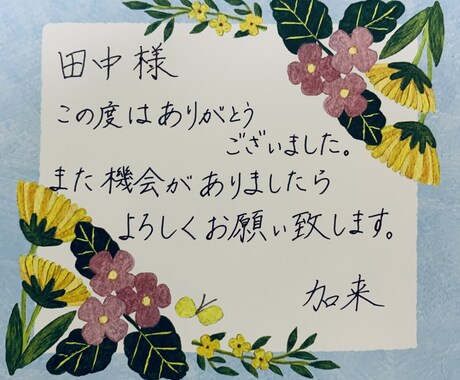 田中様
この度はありがとう
ございました。
また機会がありましたら
よろしくお願い致します。
加来